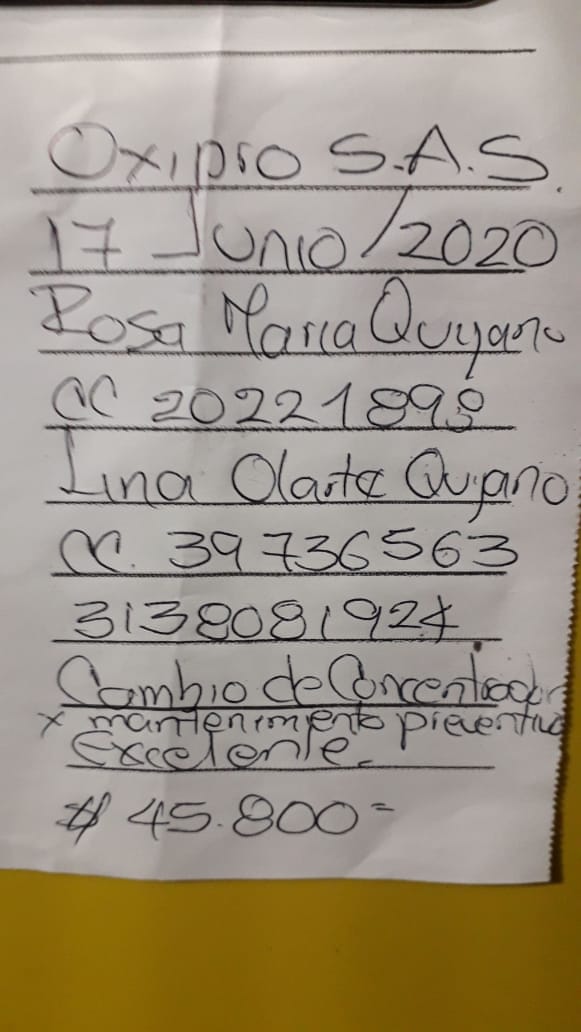 Oxipro S.A.S.
17 Junio/2020
Rosa Maria Quyano
CC 20221898
Lina Olarte Quijano
CC. 39736563
3138081924
Cambio de Concentrador
x mantenimiento preventivo
Excelente.
$ 45.800=